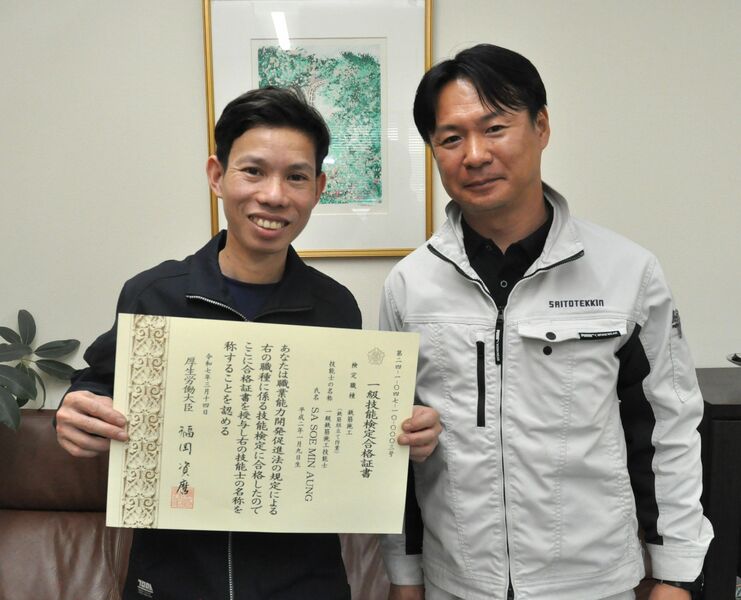 第二四-一-〇四七-一〇-〇〇〇三号
一級技能検定合格証書
検定職種 鉄筋施工
(鉄筋組立て作業)
技能士の名称 一級鉄筋施工技能士
氏名 SA SOE MIN AUNG
平成二年一月九日生
あなたは職業能力開発促進法の規定による
右の職種に係る技能検定に合格したので
ここに合格証書を授与し右の技能士の名称を
称することを認める
令和七年三月十四日
厚生労働大臣 福岡資麿
SAITOTEKKIN